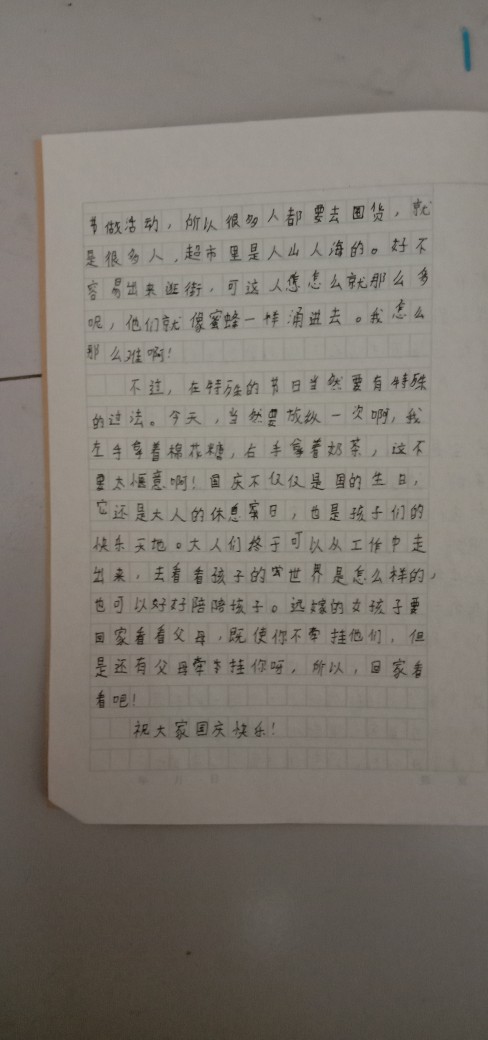 节做活动，所以很多人都要去囤货，就
是很多人，超市里是人山人海的。好不
容易出来逛街，可这人怎怎么就那么多
呢，他们就像蜜蜂一样涌进去。我怎么
那么难啊！
不过，在特殊的节日当然要有特殊
的过法。今天，当然要放纵一次啊，我
左手拿着棉花糖，右手拿着奶茶，这不
要太惬意啊！国庆不仅仅是国的生日，
它还是大人的休息日，也是孩子们的
快乐天地。大人们终于可以从工作中走
出来，去看看孩子的世界是怎么样的，
也可以好好陪陪孩子。远嫁的女孩子要
回家看看父母，既使你不牵挂他们，但
是还有父母牵挂你呀，所以，回家看
看吧！
祝大家国庆快乐！